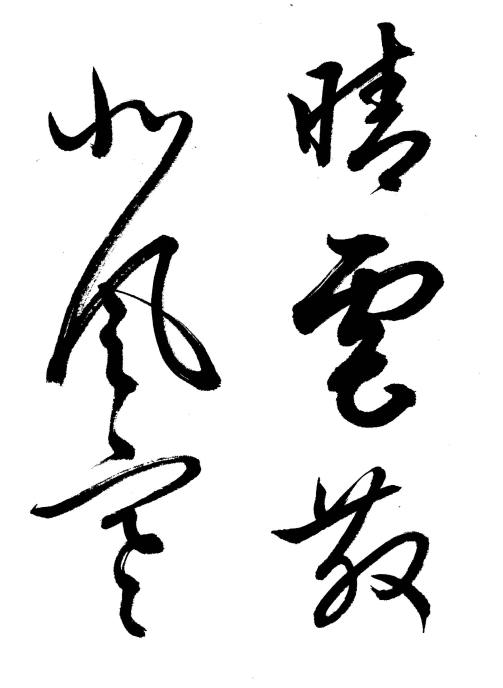 晴雲散
北風寒